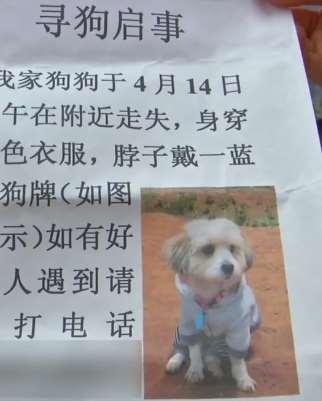 寻狗启事
我家狗狗于4月14日
午在附近走失，身穿
色衣服，脖子戴一蓝
狗牌（如图
示）如有好
人遇到请
打电话